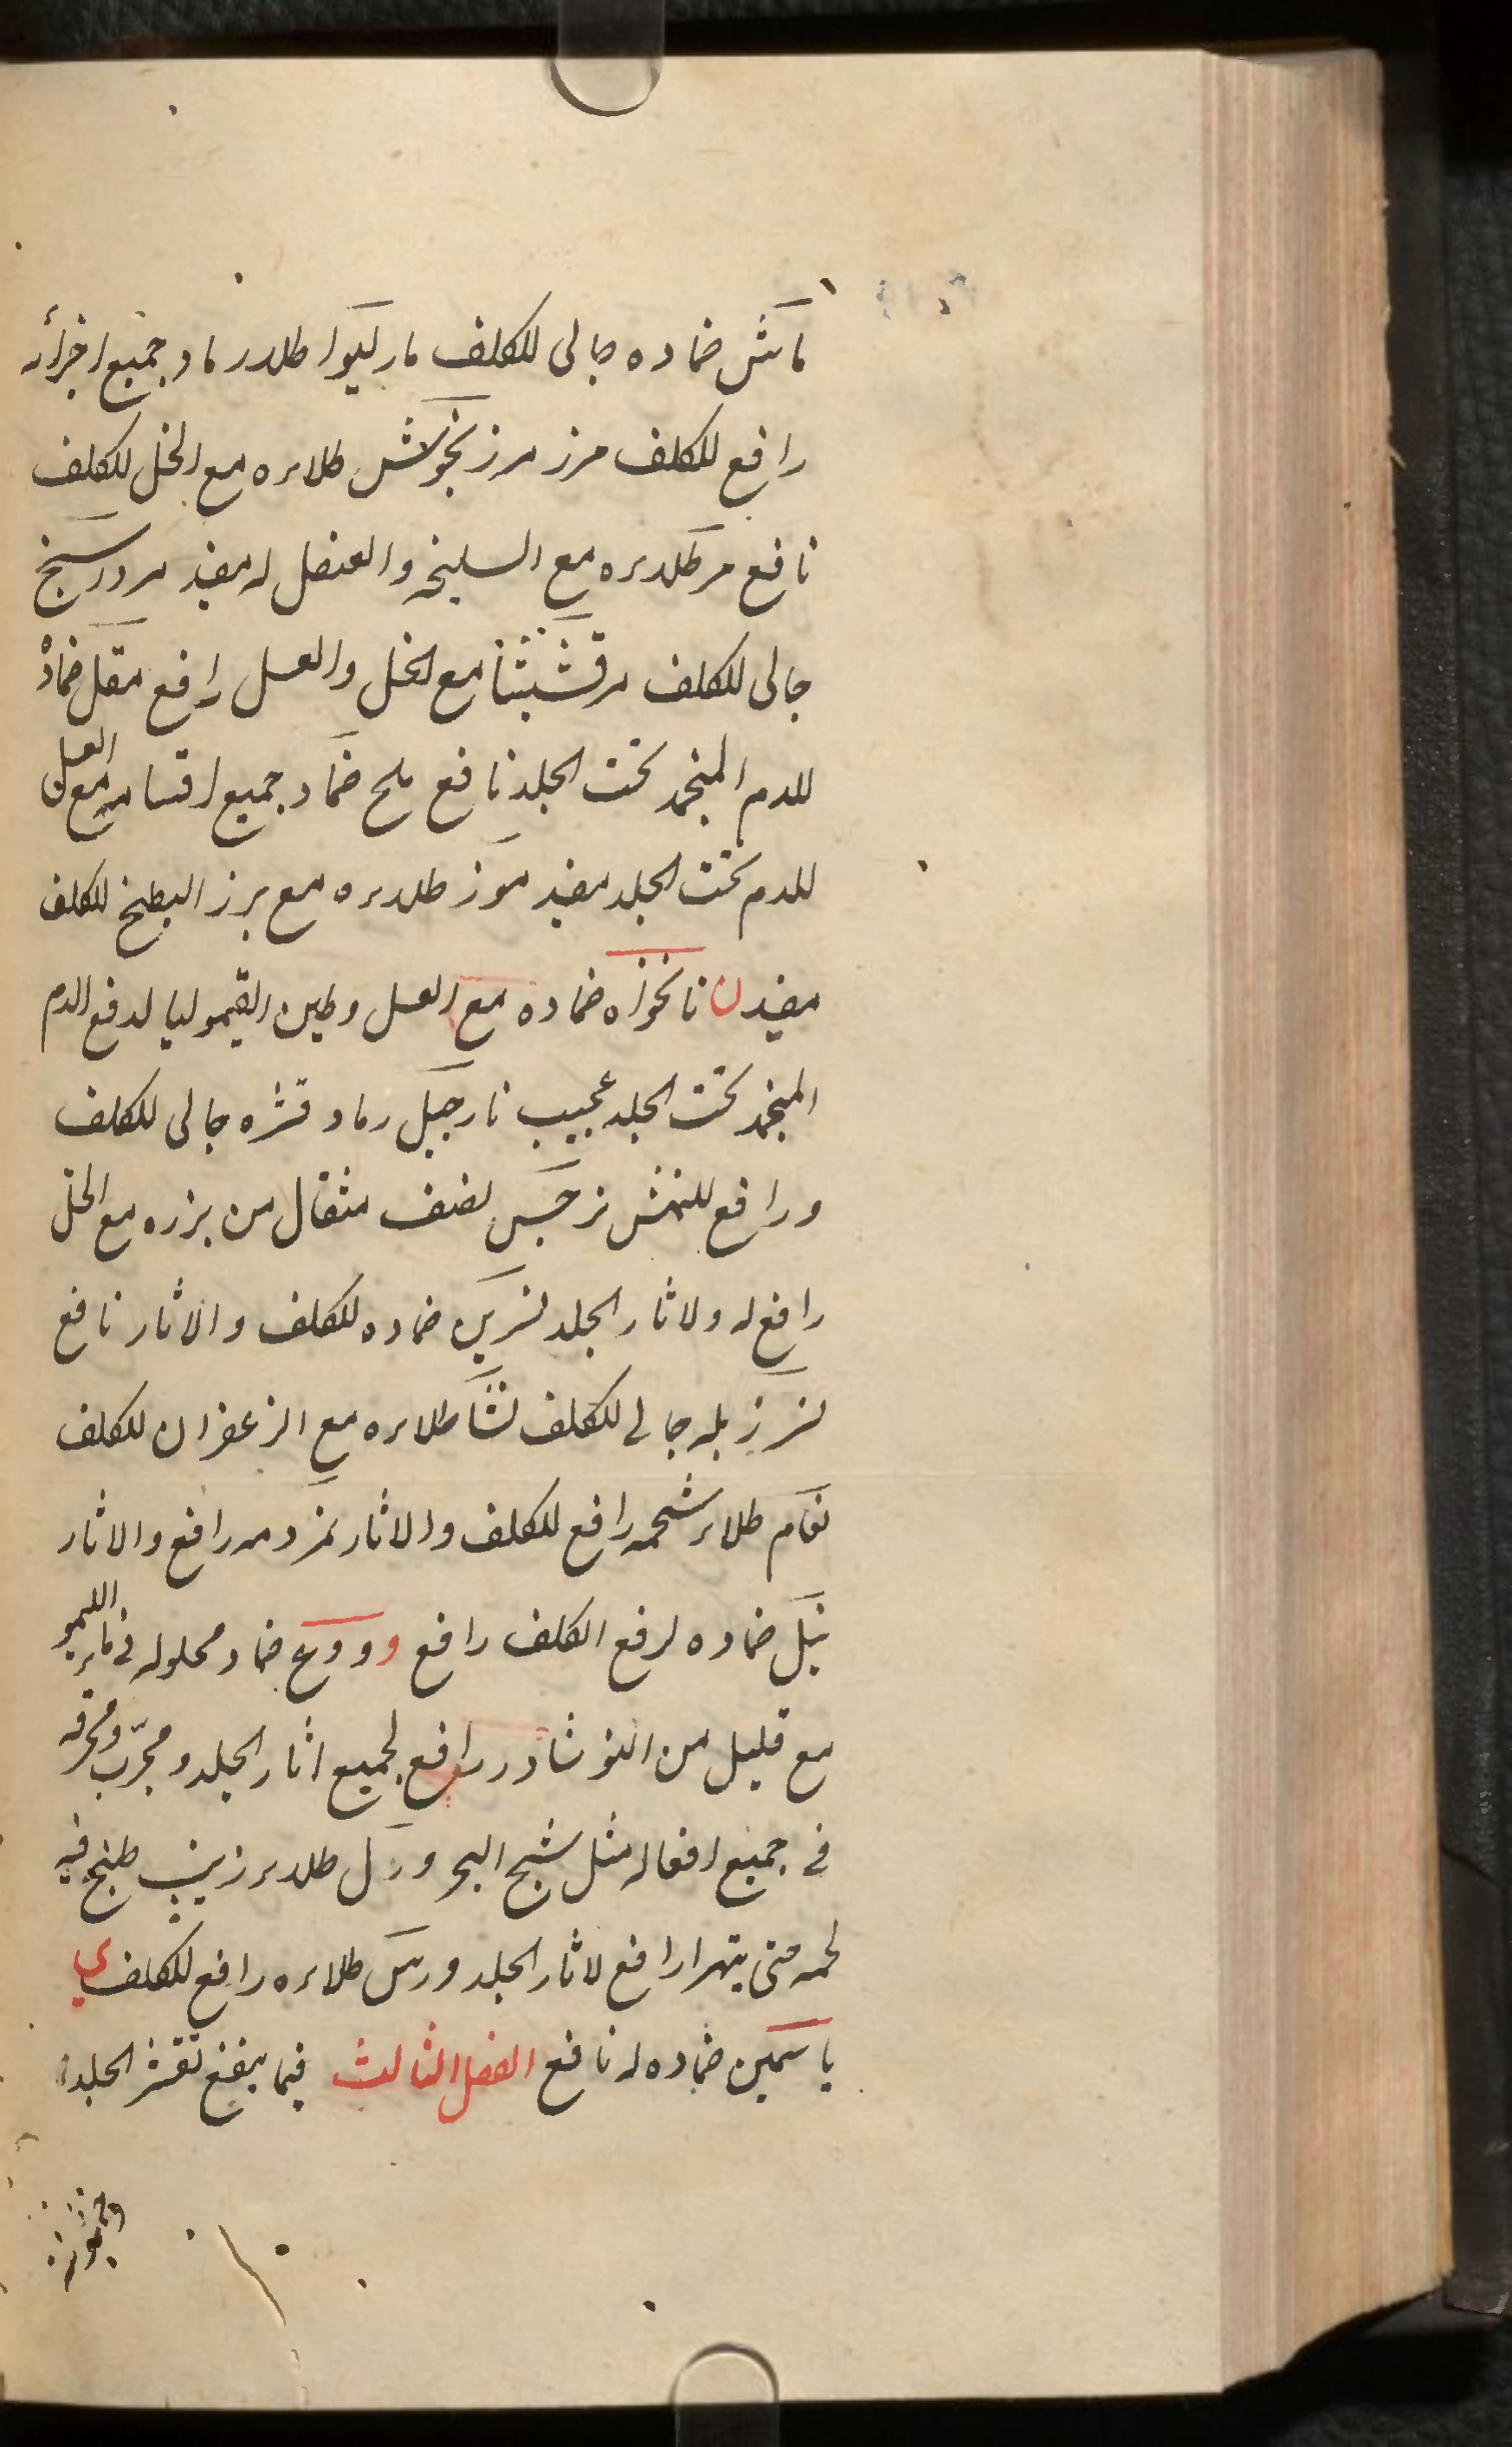 ماش ضماده جالى للكلف مارليوا طلاء رماد جميع اجزائه
رافع للكلف مرز مرزنجوش طلاءه مع الخل للكلف
نافع مر طلاءه مع السليخه والعنصل له مفيد مردارسنج
جالى للكلف مرقشيثا مع الخل والعسل رافع مقل ضماده
للدم المنجمد تحت الجلد نافع ملح ضماد جميع اقسامه مع العسل
للدم تحت الجلد مفيد موز طلاءه مع بزر البطيخ للكلف
مفيد ن نانخواه ضماده مع العسل وطين القيموليا لدفع الدم
المنجمد تحت الجلد عجيب نارجيل رماد قشره جالى للكلف
ورافع للنمش نرجس نصف مثقال من بزره مع الخل
رافع له ولاثار الجلد نسرين ضماده للكلف والاثار نافع
نسر زبله جالى للكلف نشا طلاءه مع الزعفران للكلف
نعام طلاء شحمه رافع للكلف والاثار نمر دمه رافع والاثار
نيل ضماده لرفع الكلف رافع و ودع ضماد محلوله فى ماء الليمو
مع قليل من النوشادر رافع لجميع اثار الجلد ومجرب ومحرقه
فى جميع افعاله مثل شبح البحر ورل طلاء زيت طبخ فيه
لحمه حتى يتهرا رافع لاثار الجلد ورس طلاءه رافع للكلف ي
ياسمين ضماده له نافع الفصل الثالث فيما ينفع تقشر الجلد